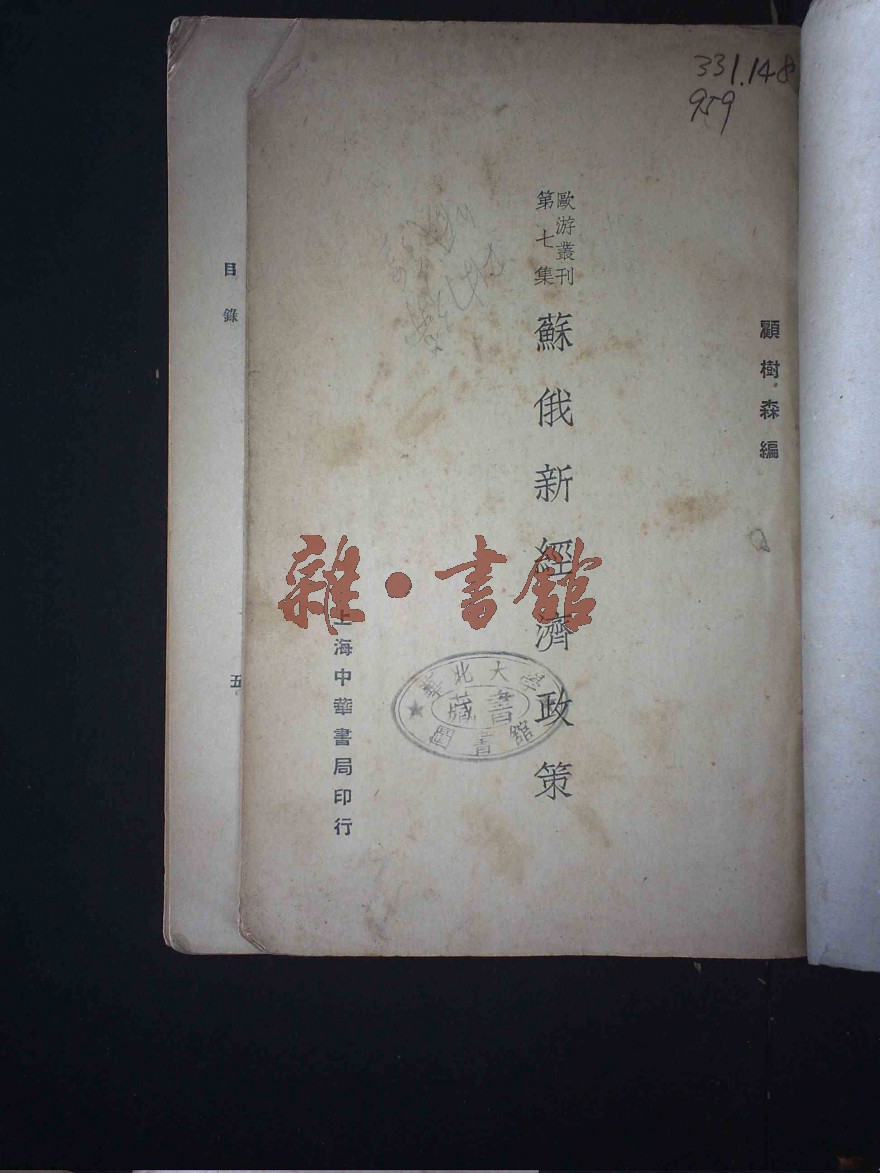 331.148
959
顧樹森編
歐游叢刊
第七集
蘇俄新經濟政策
雜·書館
華北大學
藏書
圖書館
上海中華書局印行
目錄
五